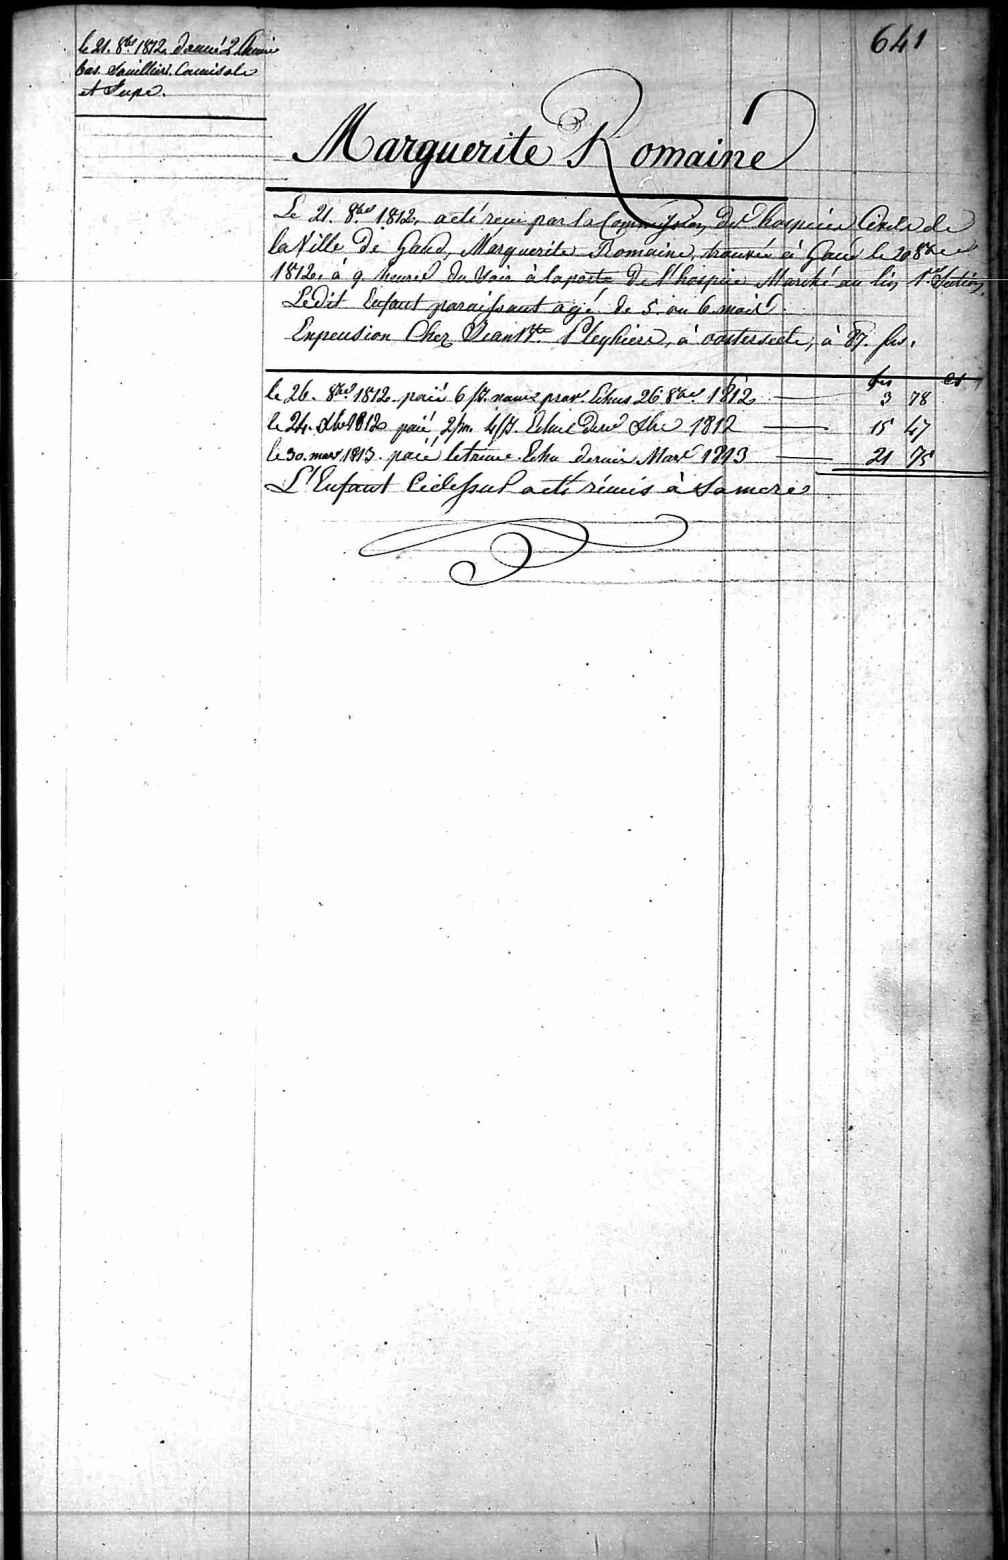 641
le 21. 8bre 1812. donné 2 Chemi
bas. Camisole
et Jupe.
Marguerite Romaine
Le 21. 8bre 1812. a été reçu par la Commission des hospices Civils de
la Ville de Gand, Marguerite Romaine, trouvée à Gand le 20 8bre
1812. à 9 heures du soir à la porte de l'hospice Marché au lin, 1re Section,
Ledit Enfant paraissant agé de 5 ou 6 mois.
En pension Chez Jean Bte à à 87. frs.
frs cs
le 26. 8bre 1812. paié 6 prov echus 26 8bre 1812 3 78
le 24. Xbre 1812 paié 2/m. 4/J. Echus Xbre 1812 15 47
le 30. mars 1813. paié letrime. Echu dernier Mars 1813 21 75
L'Enfant Cidessus a été rémis à sa mere